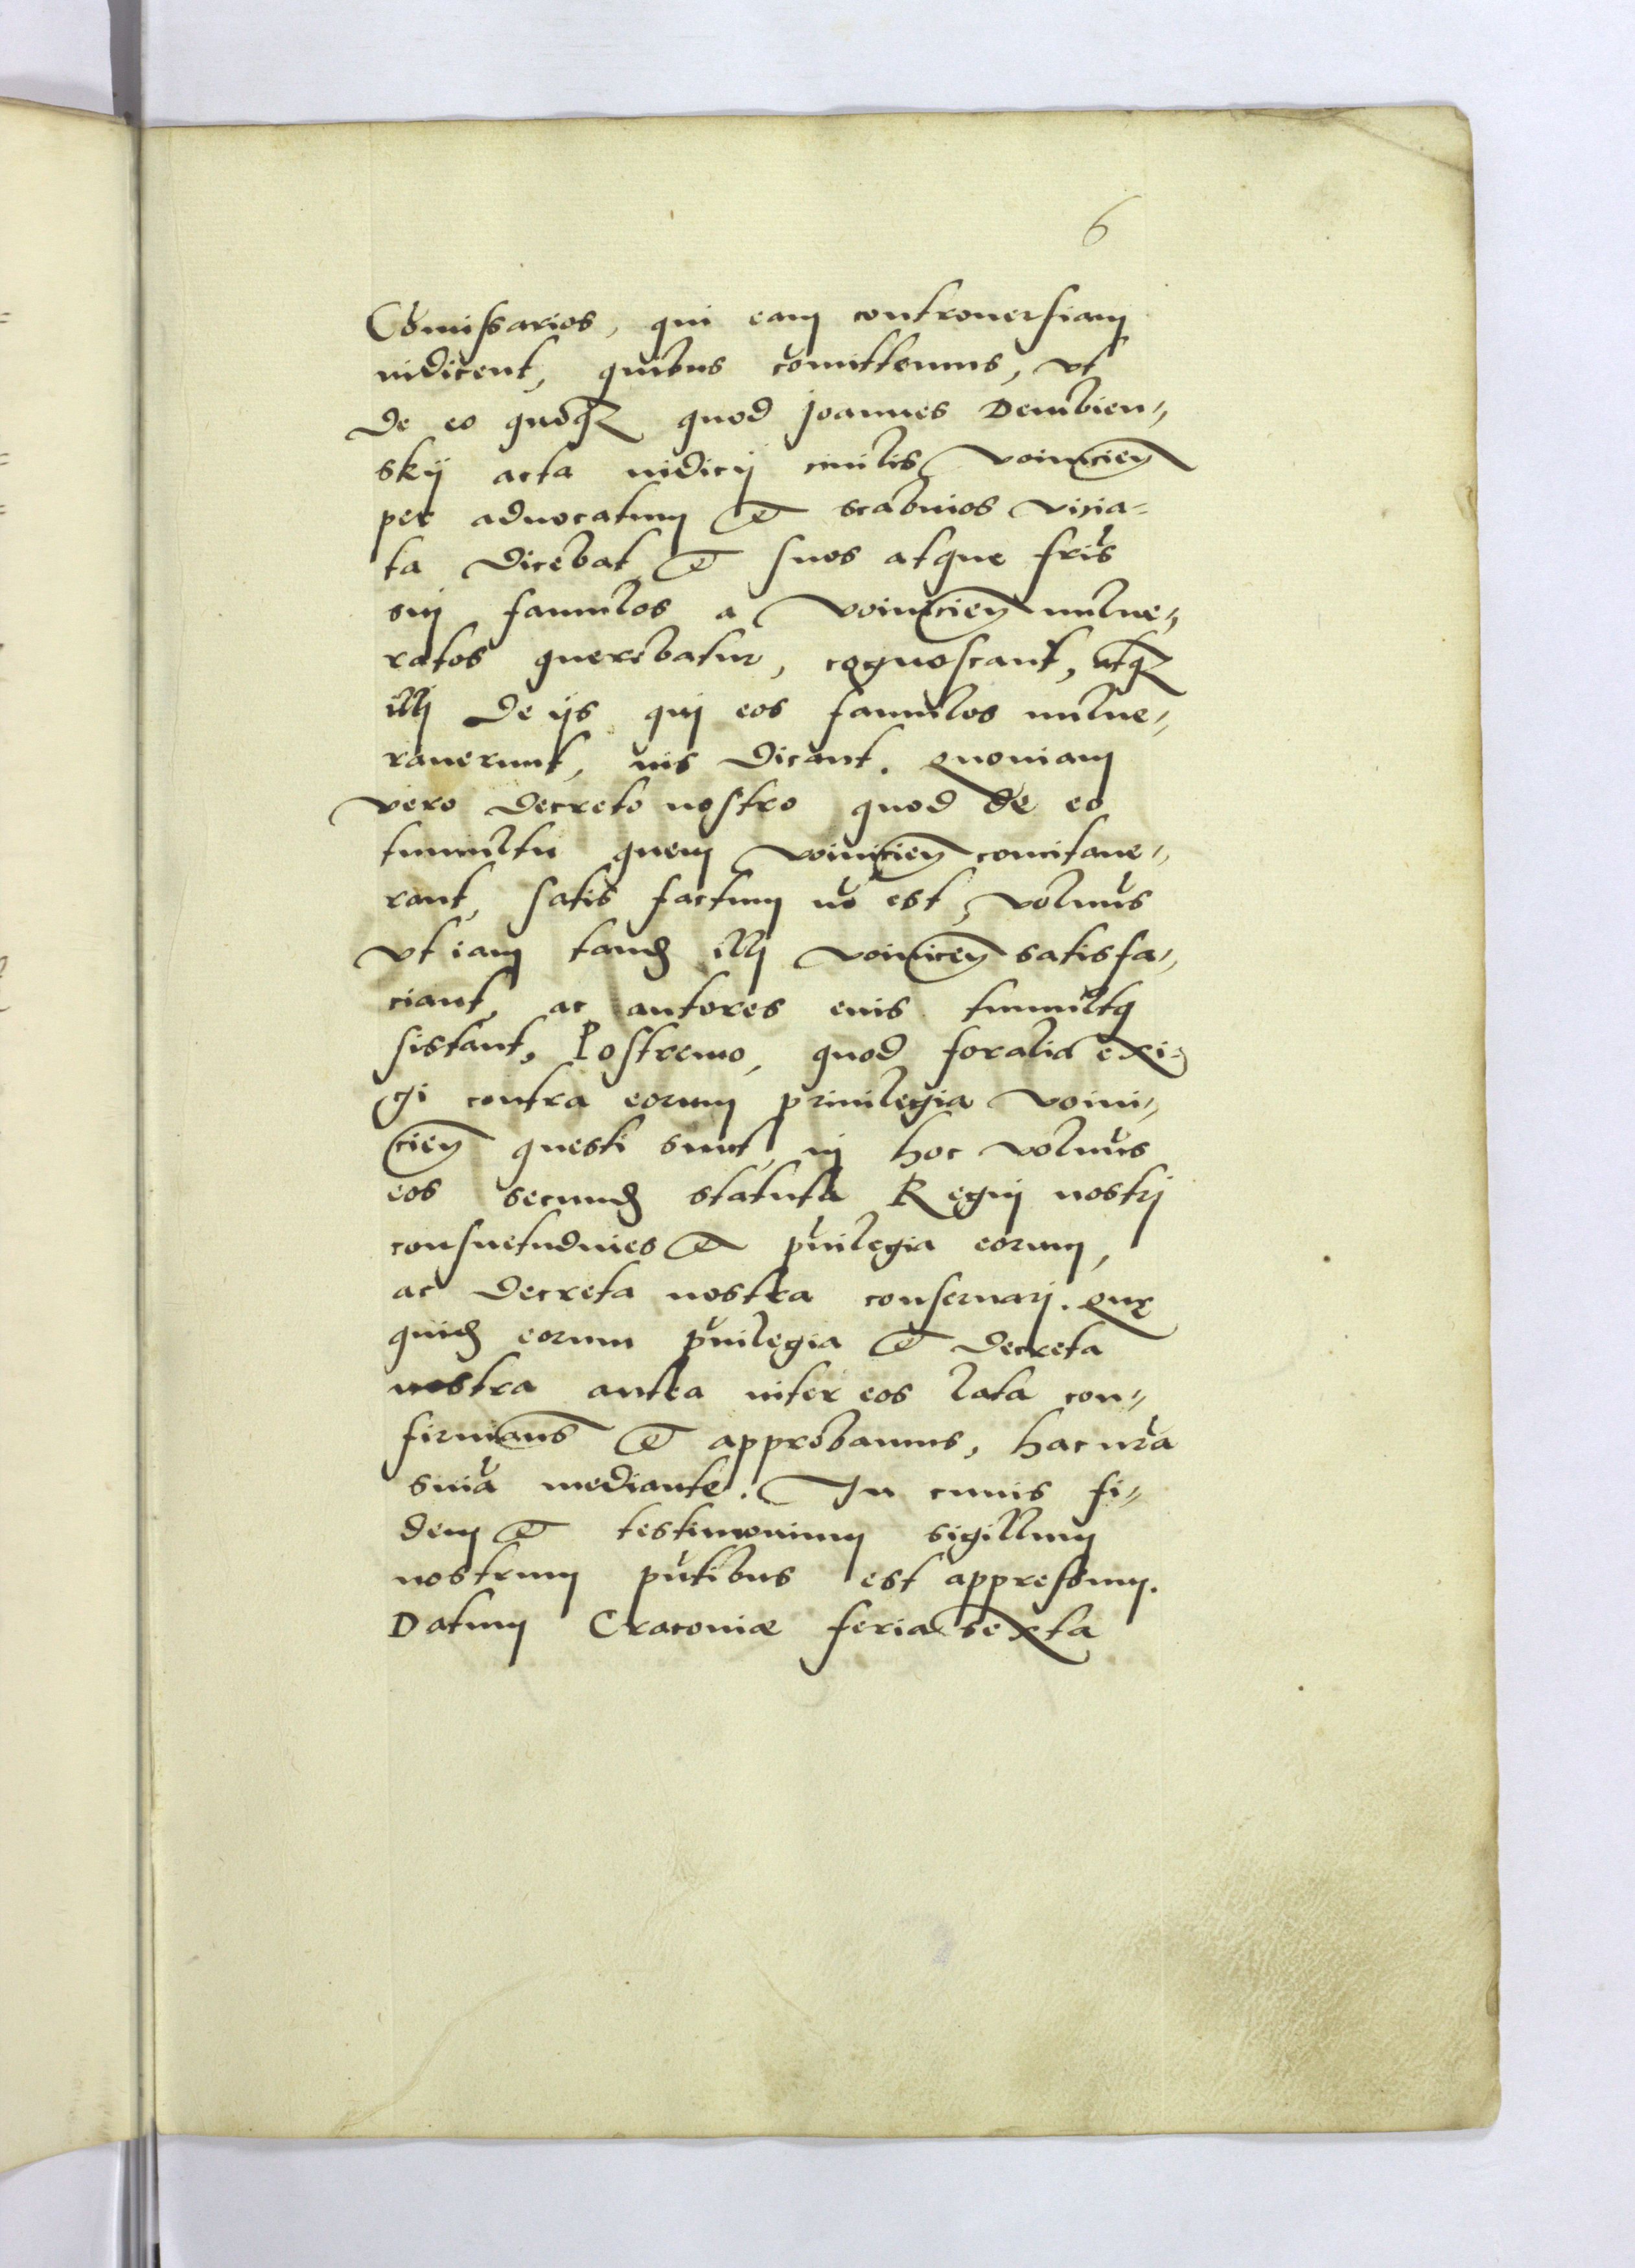 6
Cõmissarios, qui eam controuersiam
iudicent, quibus cõmittemus, vt
de eo quoqꝫ quod Joannes Dembien„
skij acta iudicij ciuilis Voinicien̄
per aduocatum et scabinos vicia=
ta dicebat et suos atque fr̃is
sui famulos a Voinicien̄ uulne„
ratos querebatur, cognoscant, atqꝫ
illi de ijs qui eos famulos uulne„
rauerunt, ius dicant. Quoniam
vero decreto nostro quod de eo
tumultu quem Voinicien̄ concitaue„
rant, satis factum nõ est, volum̃s
vt iam tandẽ illi Voinicen̄ satisfa„
ciant, ac autores eius tumultꝰ
sistant. Postremo, quod foralia exi„
gi contra eorum priuilegia Voini„
cien̄ questi sunt, in hoc volum̃s
eos secundũ statuta Regni nostri
consuetudines et pũilegia eorum,
ac decreta nostra conseruari. Quę
quidẽ eorum pũilegia et decreta
nostra antea inter eos lata con„
firmam̃s et approbamus, hac nr̃a
sñia mediante. In cuius fi„
dem et testimonium sigillum
nostrum pñtibus est appressum.
Datum Cracouiæ feria sexta